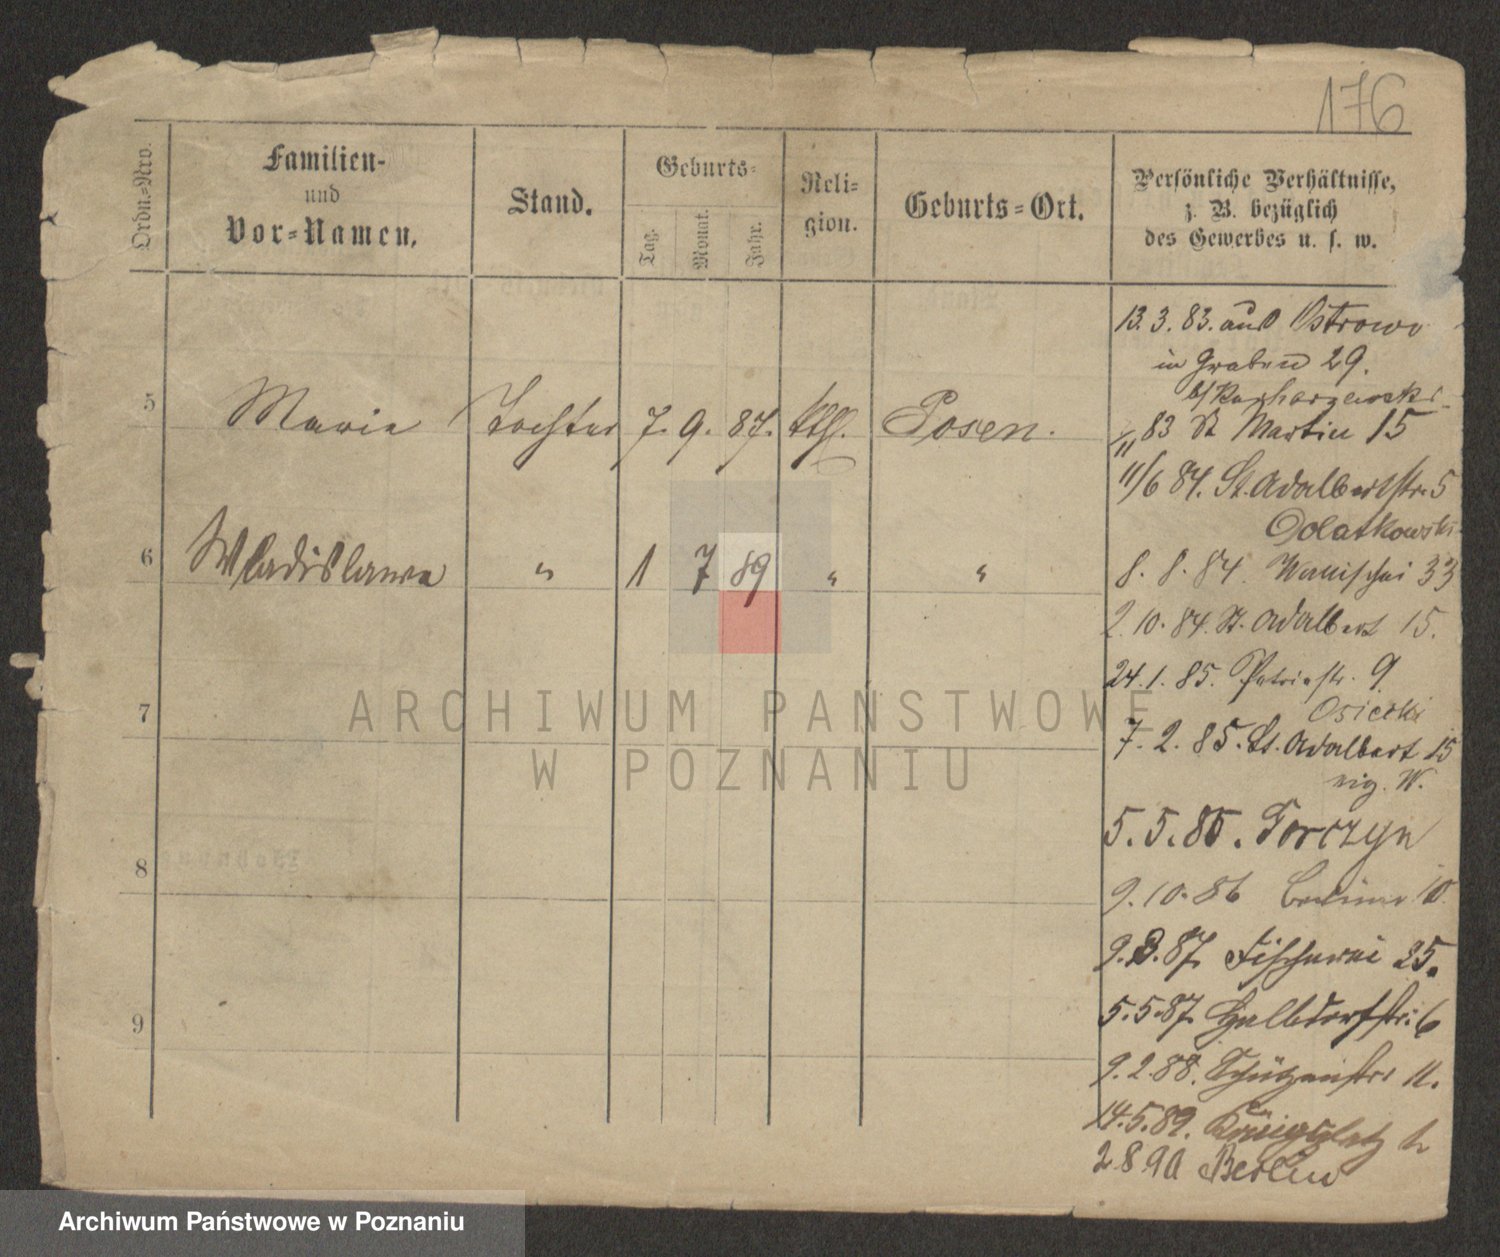 176
Ordn.=Nro.
Familien-
und
Vor=Namen.
Stand.
Geburts=
Tag.
Monat.
Jahr.
Reli=
gion.
Geburts=Ort.
Persönliche Verhältnisse,
z. B. bezüglich
des Gewerbes u. s. w.
5 Marie Tochter 7. 9. 87. kth. Posen.
6 Wladislawa " 1 7 89 " "
7
8
9
13. 3. 83. aus Ostrowo
in Graben 29.
83 St Martin 15
11/6 84. St. Adalbertstr. 5
Dolatkowski
8. 8. 84. Wallischei 33
2. 10. 84. St. Adalbert 15.
24. 1. 85. 9.
Osiecki
7. 2. 85. St. Adalbert 15
W.
5. 5. 85. Torczyn
9. 10. 86 10
9. 3. 87. Fischerei 25.
5. 5. 87. Halbdorfstr. 6
9. 2. 88. Schützenstr 11.
14. 5. 89. Königsplatz
2 8 90 Berlin
ARCHIWUM PAŃSTWOWE
W POZNANIU
Archiwum Państwowe w Poznaniu